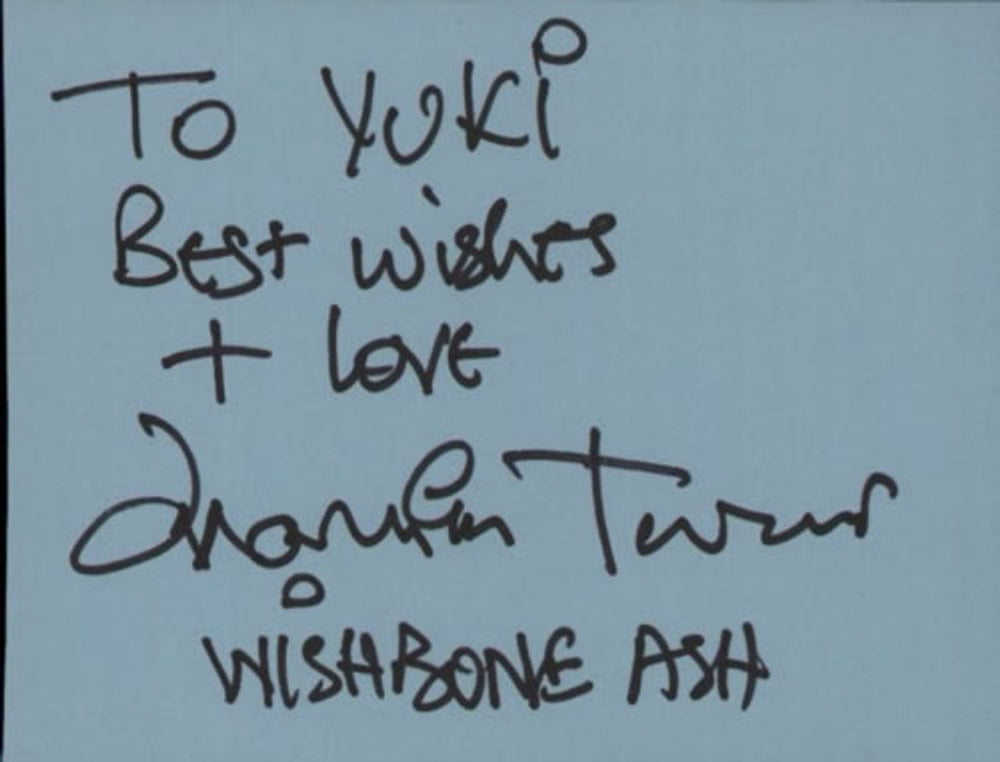 To YUKi
Best wishes
+ Love
Martin Turner
WISHBONE ASH